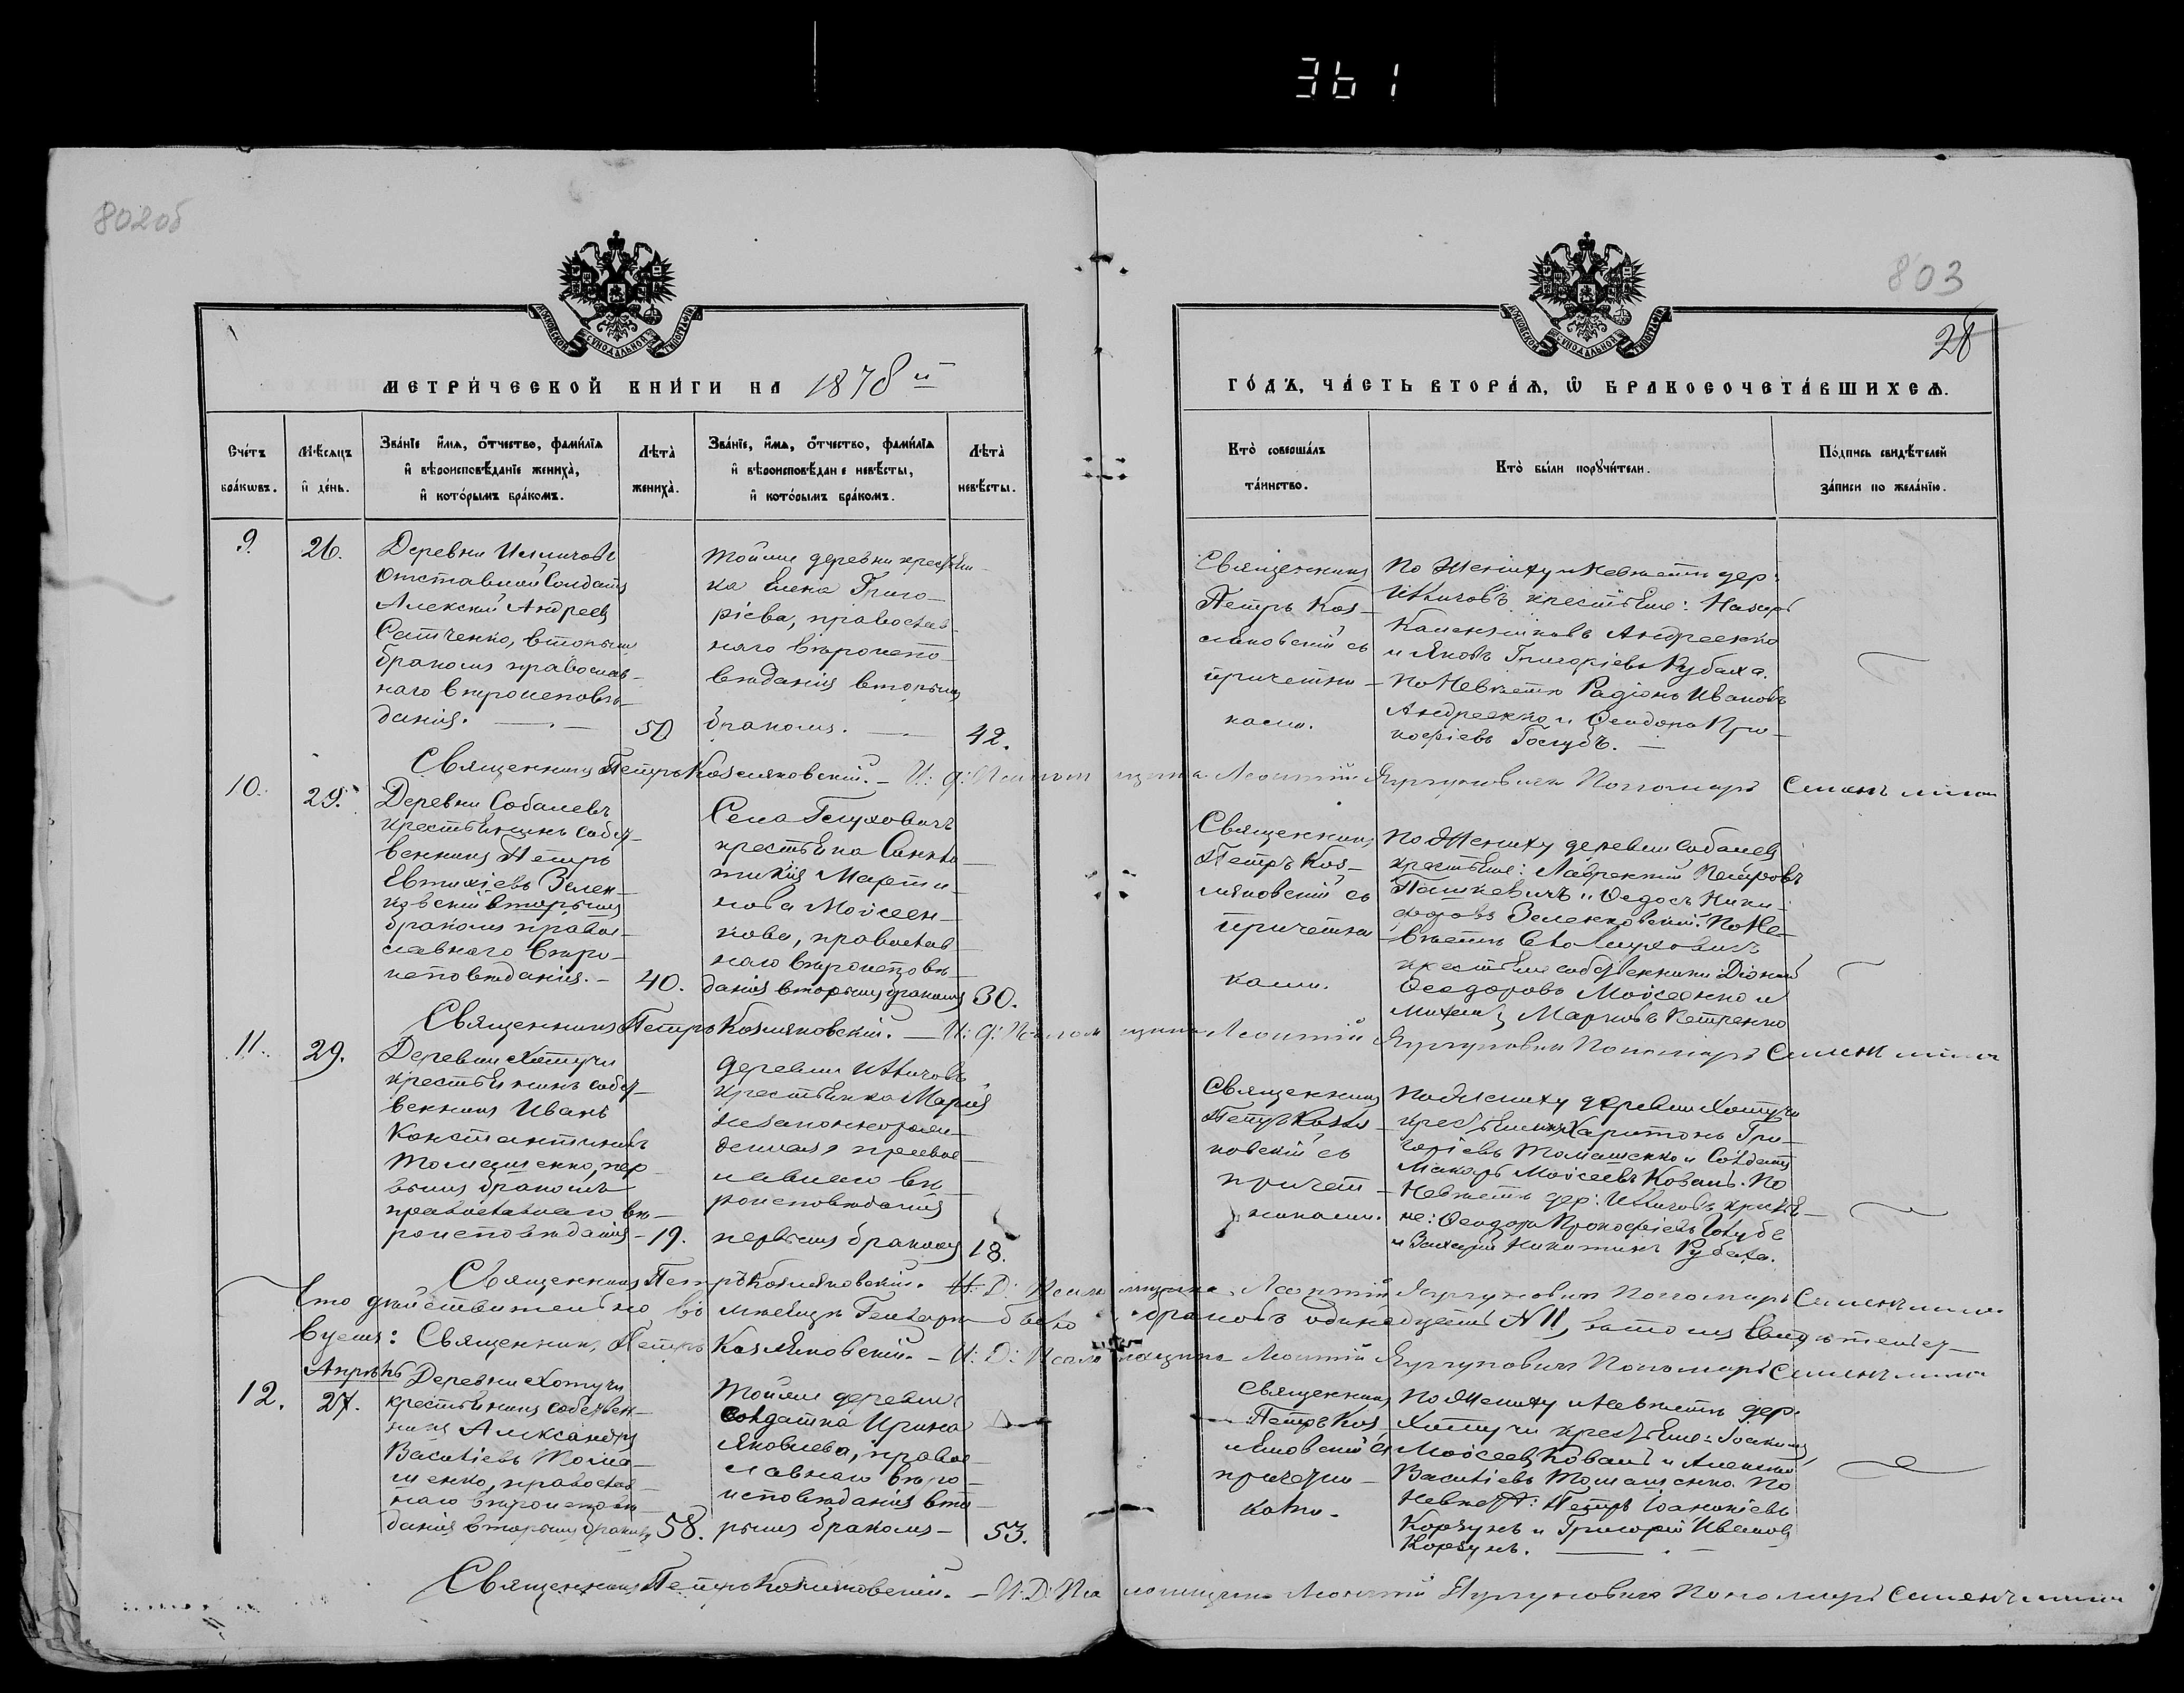 361
802об
803
28
МОСКОВСКОЙ СѴНОДАЛЬНОЙ ТИПОГРАФІИ
МОСКОВСКОЙ СѴНОДАЛЬНОЙ ТИПОГРАФІИ
МЕТРИ́ЧЕСКОЙ КНИ́ГИ НА 1878й
ГО́ДЪ, ЧА́СТЬ ВТОРА́Ѧ, Ѿ БРАКОСОЧЕТА́ВШИХСѦ.
Сче́тъ бра́кѡвъ.
Мѣ́сѧцъ и҆ де́нь.
Зва́нїе и҆́мѧ, ѻ҆́тчество, фами́лїѧ
и҆ вѣроисповѣ́данїе жениха̀,
и҆ кото́рымъ бра́комъ.
Лѣта̀ жениха̀.
Зва́нїе, и҆́мѧ, ѻ҆́тчество, фами́лїѧ
и҆ вѣроисповѣ́данїе невѣ́сты,
и҆ кото́рымъ бра́комъ.
Лѣта̀ невѣ́сты.
Кто̀ соверша́лъ та́инство.
Кто̀ бы́ли порꙋчи́тели.
По́дпись свидѣ́телей
за́писи по жела́нїю.
9.
26.
Деревни
Отставной Солдатъ
Алексей Андреев
Сатченко, вторымъ
бракомъ православ-
наго вѣроисповѣ-
данія.
50
Тойже деревни крестьян-
ка Елена Григо-
ріева, православ-
наго вѣроиспо-
вѣданія вторымъ
бракомъ.
42.
Священникъ
Петръ Коз-
ляковскій съ
причетни-
ками.
По Жениху и Невѣстѣ дер:
крестьяне: Назаръ
Андреенко
и Яковъ Григоріевъ Кубаха.
По Невѣстѣ Радіонъ Ивановъ
Андреенко и Ѳеодоръ Про-
кофіевъ Голубъ.
Священникъ Петръ Козляковскій. – И: д: Псаломщика Леонтій Пономаръ Семенъ
10.
29.
Деревни Собалевъ
крестьянинъ собст-
венникъ Петръ
Евтихіевъ Зелен-
ковскій вторымъ
бракомъ правос-
лавнаго вѣро-
исповѣданія. –
40.
Села Глуховичъ
крестьянка Синкли-
тикія Марти-
нова Мойсеен-
кова, православ-
наго вѣроисповѣ-
данія вторымъ бракомъ
30.
Священникъ
Петръ Коз-
ляковскій съ
причетни-
ками.
По Жениху деревни Собалевъ
крестьяне: Лаврентій Петровъ
Пашкевичъ и Ѳедосъ Ники-
форовъ Зеленковскій. По Не-
вѣстѣ Села Глуховичъ
крестьяне собственники Діонисій
Ѳеодоровъ Мойсеенко и
Михаилъ Марковъ Петренко
Священникъ Петръ Козляковскій. – И: д: Псаломщика Леонтій Пономаръ Семенъ
11.
29.
Деревни Хатучи
крестьянинъ собст-
венникъ Иванъ
Константиновъ
Томашенко, пер-
вымъ бракомъ
православнаго вѣ-
роисповѣданія –
19.
деревни
крестьянка Марія
незаконнорож-
денная правос-
лавнаго вѣ-
роисповѣданія
первымъ бракомъ
18.
Священникъ
Петръ Козля-
ковскій съ
причет-
никами.
По Жениху деревни Хатучи
крестьянинъ Харитонъ Гри-
горіевъ Томашенко и Солдатъ
Макаръ Мойсеевъ Ковалъ. По
Невѣстѣ дер: крестья-
не: Ѳеодоръ Прокофіевъ Голубъ
и Никитинъ Кубаха.
Священникъ Петръ Козляковскій. И: Д: Псаломщика Леонтій Пономаръ Семенъ
Что дѣйствительно во мѣсяцѣ Генварѣ было браковъ одинадцать № 11, въ томъ свидѣтельст-
вуемъ: Священникъ Петръ Козляковскій. – И: Д: Псаломщика Леонтій Пономаръ Семенъ
Апрѣль
12.
27.
Деревни Хатучи
крестьянинъ собствен-
никъ Александръ
Василіевъ Тома-
шенко, православ-
наго вѣроисповѣ-
данія вторымъ бракомъ
58.
Тойже деревни
солдатка Ирина
Яковлева, правос-
лавнаго вѣро-
исповѣданія вто-
рымъ бракомъ –
53.
Священникъ
Петръ Коз-
ляковскій съ
причетни-
ками.
По Жениху и Невѣстѣ дер.
Хатучи крестьяне: Іоакимъ
Мойсеевъ Ковалъ и Алексѣй
Василіевъ Томашенко. По
Невѣстѣ: Петръ
Корзунъ и Григорій Ивановъ
Корзунъ.
Священникъ Петръ Козляковскій. – И: Д: Псаломщика Леонтій Пономаръ Семенъ